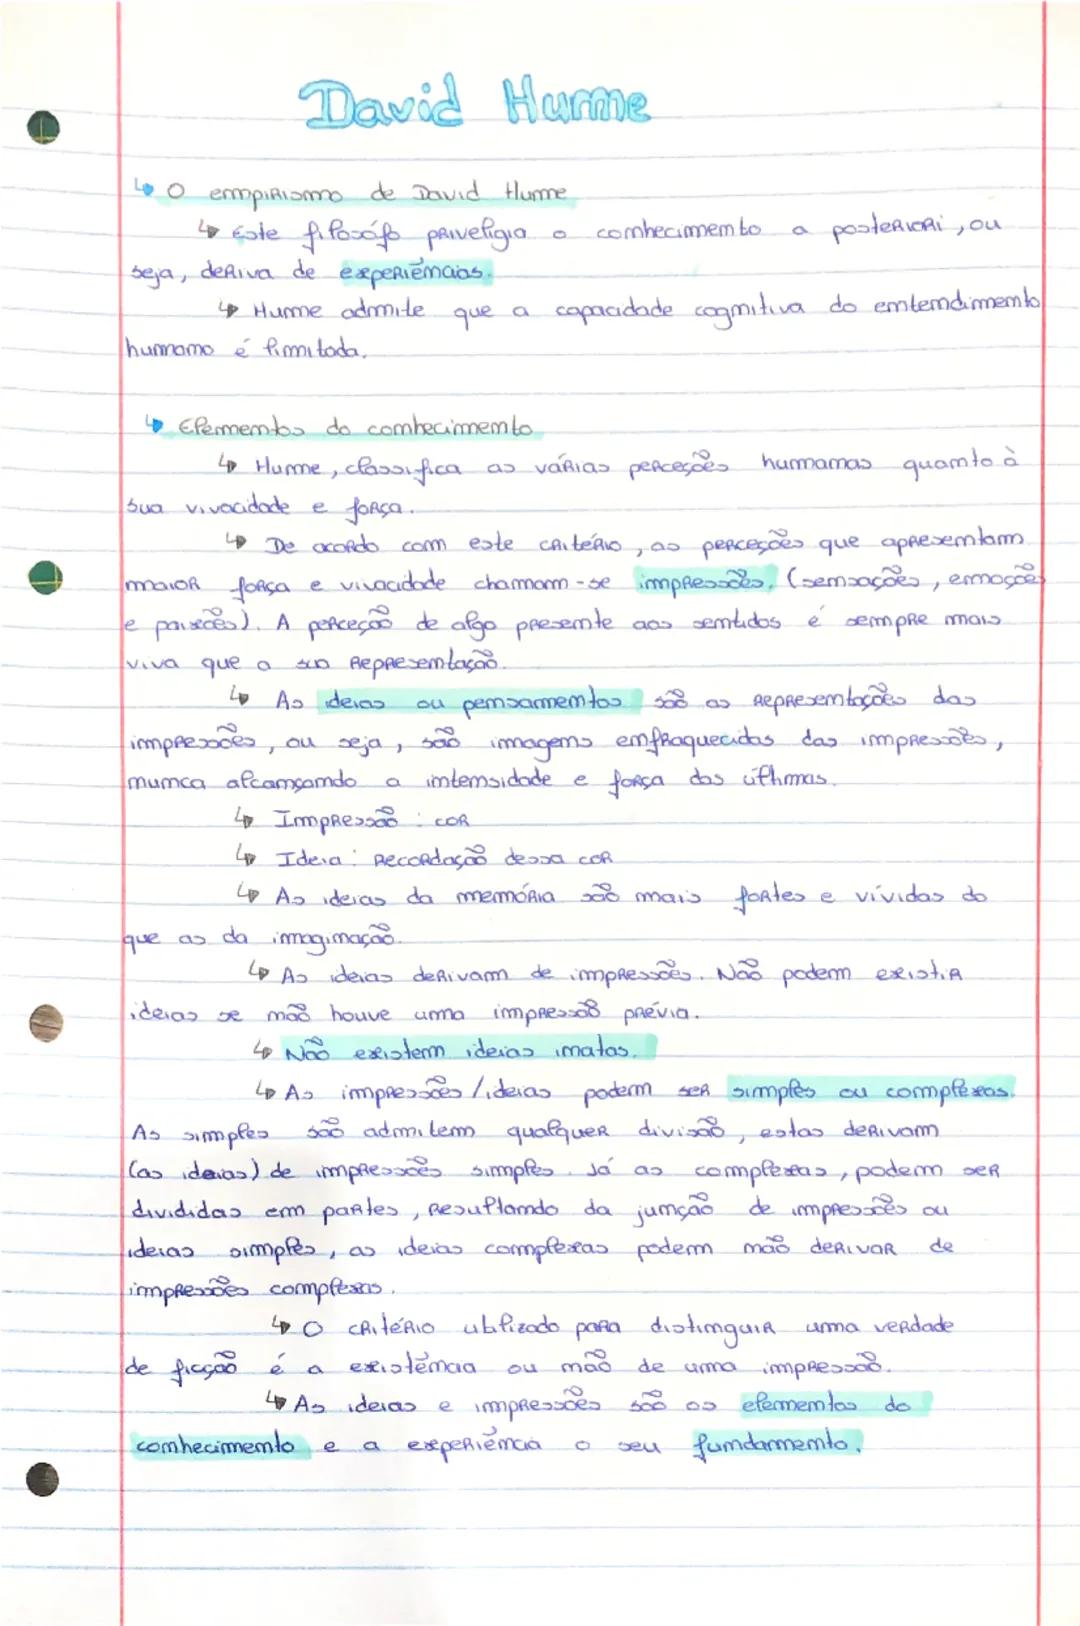 David Hume
↳ O empirismo de David Hume
↳ Este filosófo priveligia o conhecimento a posteriori, ou
seja, deriva de experiências.
↳ Hume admite que a capacidade cognitiva do entendimento
humano é limitada.
↳ Elementos do conhecimento
↳ Hume, classifica as várias perceções humanas quanto à
sua vivacidade e força.
↳ De acordo com este critério, as perceções que apresentam
maior força e vivacidade chamam-se impressões. (sensações, emoções
e paixões). A perceção de algo presente aos sentidos é sempre mais
viva que a sua representação.
↳ As ideias ou pensamentos são as representações das
impressões, ou seja, são imagens enfraquecidas das impressões,
nunca alcançando a intensidade e força das últimas.
↳ Impressão: cor
↳ Ideia: Recordação dessa cor
↳ As ideias da memória são mais fortes e vívidas do
que as da imaginação.
↳ As ideias derivam de impressões. Não podem existir
ideias se não houve uma impressão prévia.
↳ Não existem ideias inatas.
↳ As impressões/ideias podem ser simples ou complexas.
As simples são admitem qualquer divisão, estas derivam
(as ideias) de impressões simples. Já as complexas, podem ser
divididas em partes, resultando da junção de impressões ou
ideias simples, as ideias complexas podem não derivar de
impressões complexas.
↳ O critério utilizado para distinguir uma verdade
de ficção é a existência ou não de uma impressão.
↳ As ideias e impressões são os elementos do
conhecimento e a experiência o seu fundamento.